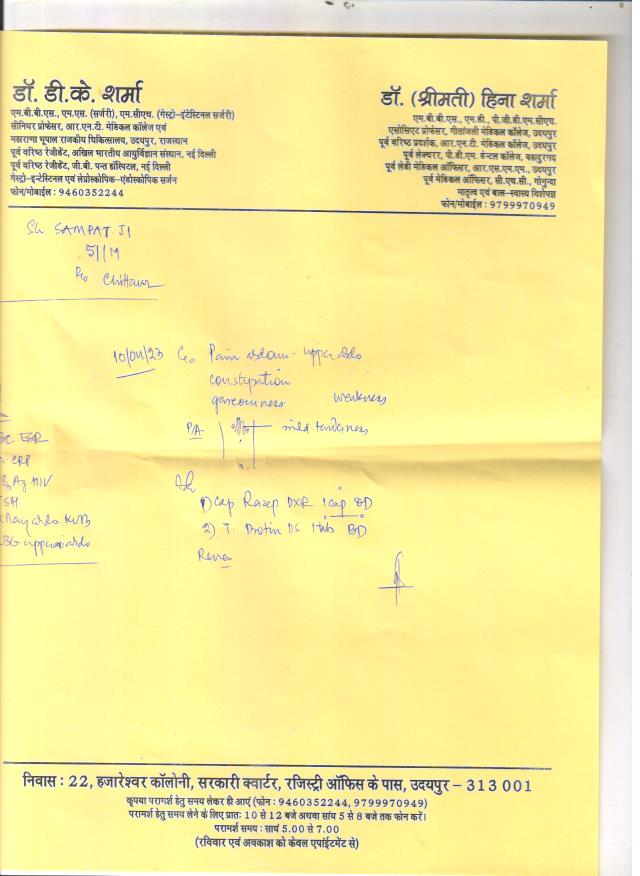 डॉ. डी.के. शर्मा
एम.बी.बी.एस., एम.एस. (सर्जरी), एम.सीएच. (गेस्ट्रो-इंटेस्टिनल सर्जरी)
सीनियर प्रोफेसर, आर.एन.टी. मेडिकल कॉलेज एवं
महाराणा भूपाल राजकीय चिकित्सालय, उदयपुर, राजस्थान
पूर्व वरिष्ठ रेजीडेंट, अखिल भारतीय आयुर्विज्ञान संस्थान, नई दिल्ली
पूर्व वरिष्ठ रेजीडेंट, जी.बी. पन्त हॉस्पिटल, नई दिल्ली
गेस्ट्रो-इन्टेस्टिनल एवं लेप्रोस्कोपिक-एंडोस्कोपिक सर्जन
फोन/मोबाईल : 9460352244
डॉ. (श्रीमती) हिना शर्मा
एम.बी.बी.एस., एम.डी., पी.जी.डी.एम.सीएच.
एसोसिएट प्रोफेसर, गीतांजली मेडिकल कॉलेज, उदयपुर
पूर्व वरिष्ठ प्रदर्शक, आर.एन.टी. मेडिकल कॉलेज, उदयपुर
पूर्व लेक्चरर, पी.डी.एम. डेन्टल कॉलेज, बहादुरगढ़
पूर्व लेडी मेडिकल ऑफिसर, आर.एस.एम.एम., उदयपुर
पूर्व मेडिकल ऑफिसर, सी.एच.सी., गोगुन्दा
मातृत्व एवं बाल-स्वास्थ्य विशेषज्ञ
फोन/मोबाईल : 9799970949
Sh SAMPAT JI
51/M
R/o Chittaur
10/04/23 C/o Pain abdom - upper abdo
constypation
gaseouness weakness
P/A mild tenderness
CBC ESR
CRP
HB Ag HIV
TSH
X Ray abdo KUB
USG upper abdo
Rx
1) Cap Razep DXR 1 cap OD
2) T. Drotin DS 1 tab BD
Review
निवास : 22, हजारेश्वर कॉलोनी, सरकारी क्वार्टर, रजिस्ट्री ऑफिस के पास, उदयपुर - 313 001
कृपया परामर्श हेतु समय लेकर ही आएं (फोन : 9460352244, 9799970949)
परामर्श हेतु समय लेने के लिए प्रात: 10 से 12 बजे अथवा सांय 5 से 8 बजे तक फोन करें।
परामर्श समय : सायं 5.00 से 7.00
(रविवार एवं अवकाश को केवल एपांईटमेंट से)